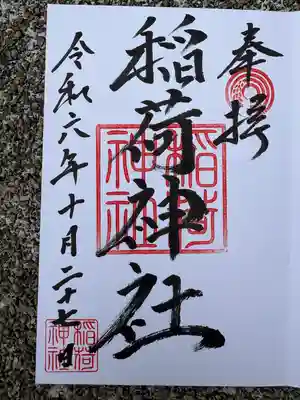 奉拝
稲荷神社
稲荷神社
令和六年十月二十七日
稲荷神社